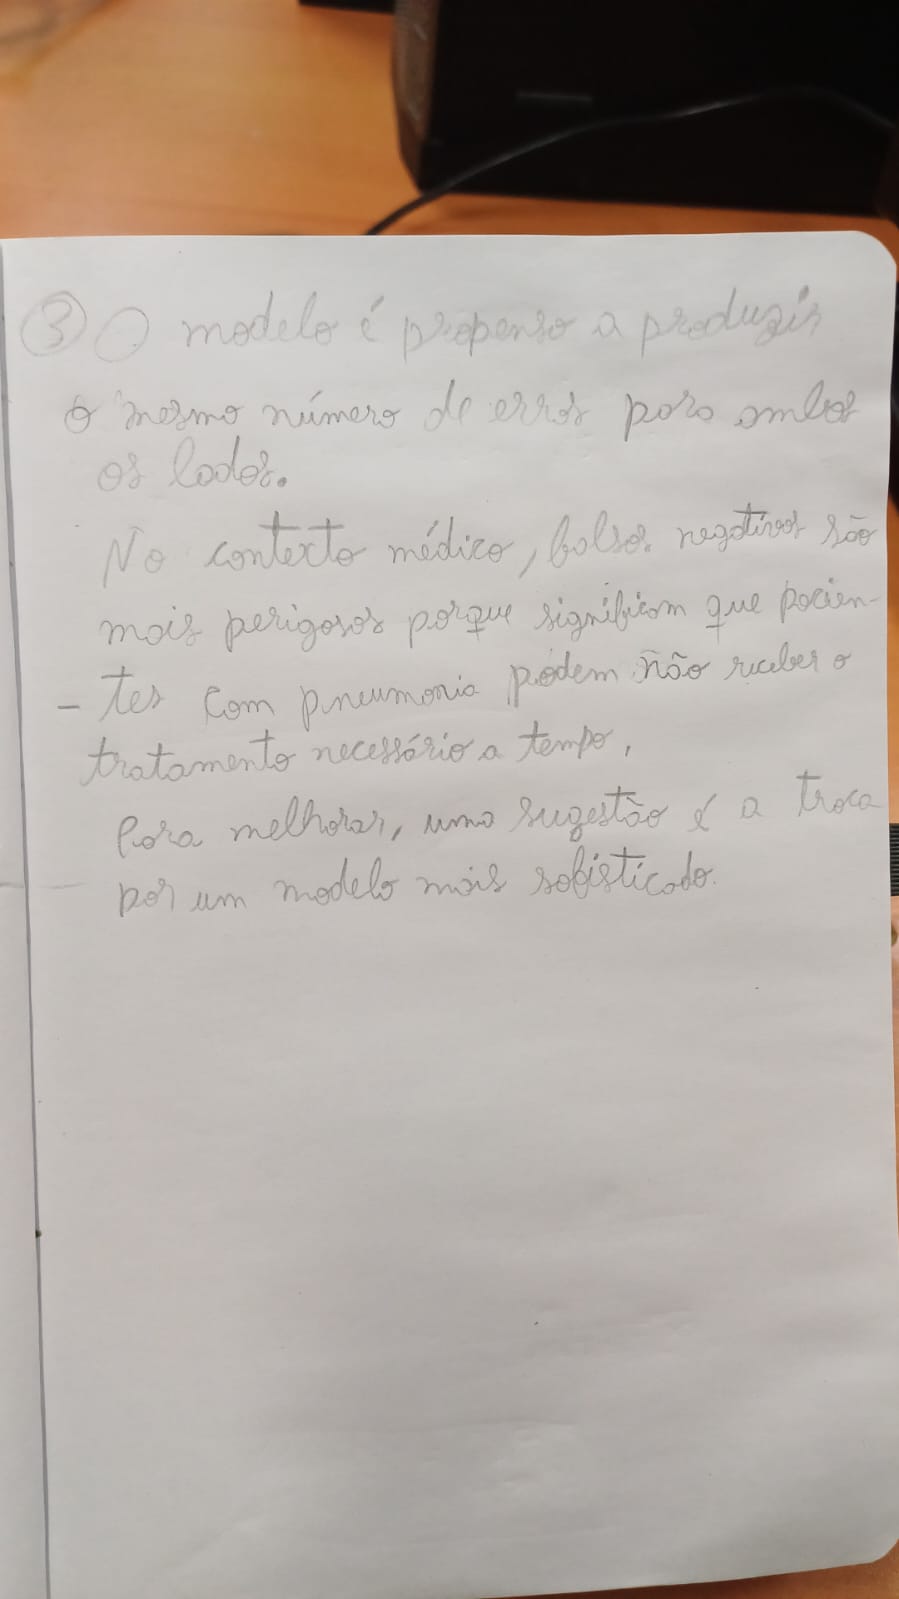 ③ O modelo é propenso a produzir
o mesmo número de erros para ambos
os lados.
No contexto médico, falsos negativos são
mais perigosos porque significam que pacien-
- tes com pneumonia podem não receber o
tratamento necessário a tempo.
Para melhorar, uma sugestão é a troca
por um modelo mais sofisticado.